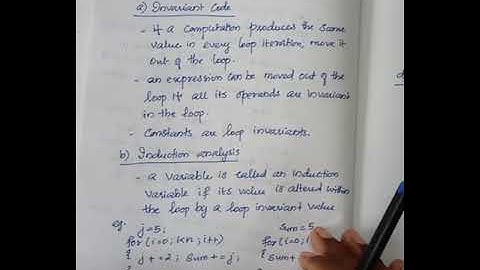 a) Invariant Code
- If a computation produces the same
value in every loop iteration, move it
out of the loop.
- an expression can be moved out of the
loop if all its operands are invariant
in the loop.
- Constants are loop invariants.
b) Induction analysis
- a variable is called an induction
variable if its value is altered within
the loop by a loop invariant value
eg: j=5; sum=5
for(i=0; i<n; i++) for(i=0;
{ j+=2; sum+=j; { sum+